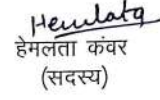 Hemlata
हेमलता कंवर
(सदस्य)